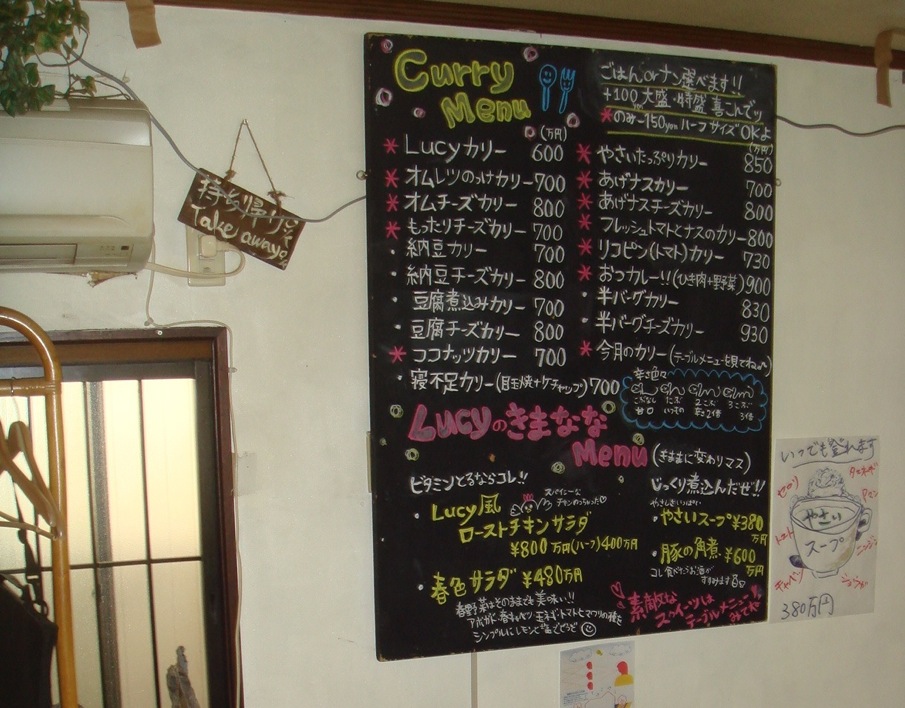 持ち帰り
Take away
Curry
Menu
ごはんorナン選べます!!
+100円大盛・特盛 喜こんでッ
*のみ-150yenハーフサイズOKよ
(万円)
*Lucyカリー 600
*オムレツのっけカリー 700
*オムチーズカリー 800
*もったりチーズカリー 700
・納豆カリー 700
・納豆チーズカリー 800
・豆腐煮込みカリー 700
・豆腐チーズカリー 800
*ココナッツカリー 700
・寝不足カリー(目玉焼+ケチャップ) 700
(万円)
*やさいたっぷりカリー 850
*あげナスカリー 700
*あげナスチーズカリー 800
*フレッシュトマトとナスのカリー 800
*リコピン(トマト)カリー 730
*おつカレー!!(ひき肉+野菜) 900
・半バーグカリー 830
・半バーグチーズカリー 930
*今月のカリー(テーブルメニューを見てねっ)
辛さ色々
こぶなし 1こぶ 2こぶ 3こぶ
甘口 いつもの 辛さ2倍 3倍
Lucyのきまなな
Menu (きままに変わりマス)
ビタミンとるならコレ!!
・Lucy風
ローストチキンサラダ
¥800万円(ハーフ)400万円
・春色サラダ ¥480万円
春野菜はそのままでも美味い!!
アボガド・春キャベツ・玉ネギ・トマト・ヒマワリの種を
シンプルにレモンと塩でどうぞ
じっくり煮込んだぜ!!
・やさいスープ¥380
万円
・豚の角煮¥600
万円
コレ食べたらお酒が
すすみます
素敵な
スウィーツは
テーブルメニュー!!
みてネ
いつでも登れます
セロリ
タマネギ
やさい
スープ
トマト
ニンジン
キャベツ
380万円